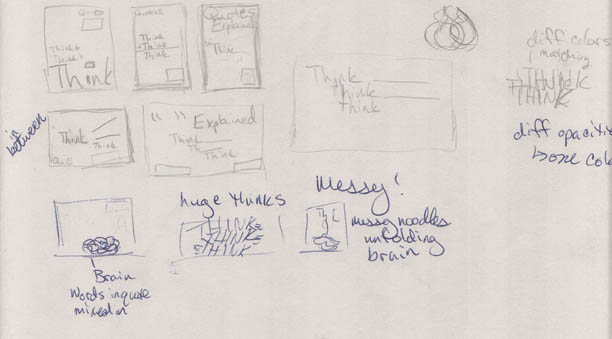 Quotes
Think
Think
Think
Quotes
Think
Think
Think
Quotes
Explained
Think
Think
think
think
diff colors
matching
THINK
THINK
in
between
Think
Think
" "
Explained
Think
Think
Think
diff opacities
huge thinks
THINK
THINK
THINK
Messy!
messy noodles
unfolding
brain
Brain
Words in quote
mixed in